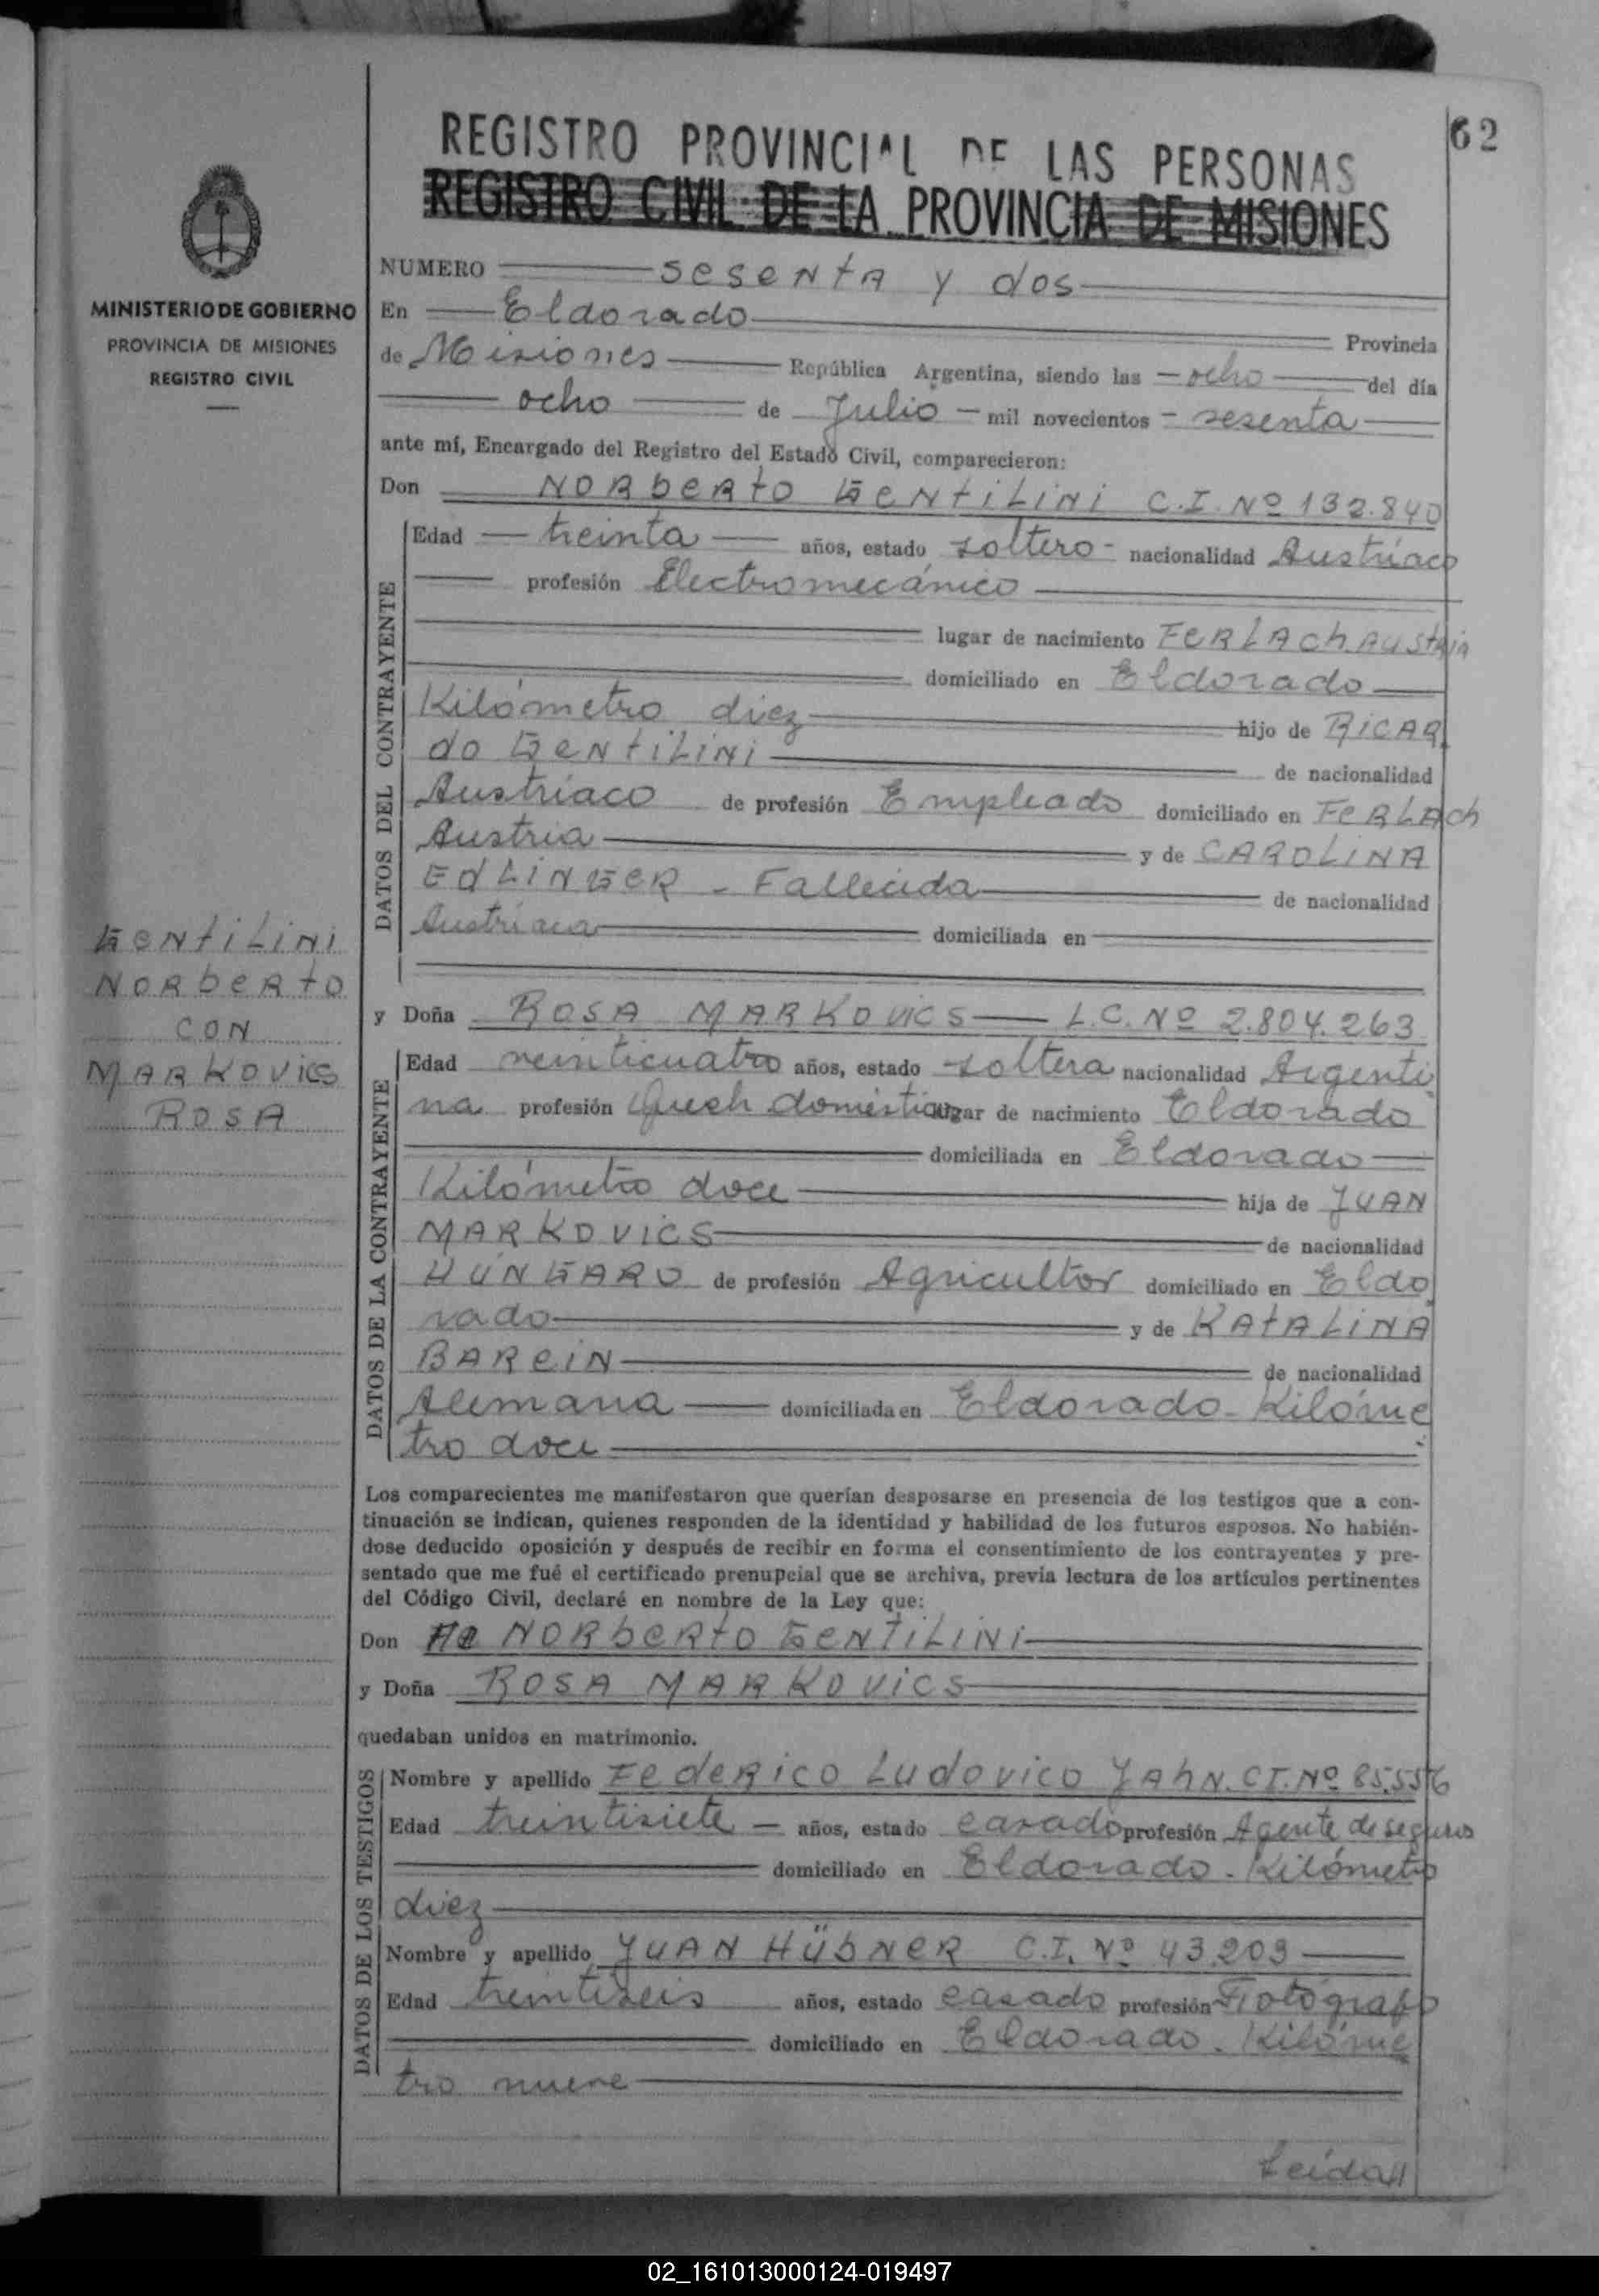 62
REGISTRO PROVINCIAL DE LAS PERSONAS
REGISTRO CIVIL DE LA PROVINCIA DE MISIONES
MINISTERIO DE GOBIERNO
PROVINCIA DE MISIONES
REGISTRO CIVIL
GENTILINI
NORBERTO
CON
MARKOVICS
ROSA
NUMERO sesenta y dos
En Eldorado Provincia
de Misiones República Argentina, siendo las ocho del día
ocho de Julio mil novecientos sesenta
ante mí, Encargado del Registro del Estado Civil, comparecieron:
Don NORBERTO GENTILINI C.I. Nº 132.840
DATOS DEL CONTRAYENTE
Edad treinta años, estado soltero nacionalidad Austríaco
profesión Electromecánico
lugar de nacimiento FERLACH. AUSTRIA
domiciliado en Eldorado
Kilómetro diez hijo de RICAR
DO GENTILINI de nacionalidad
Austríaco de profesión Empleado domiciliado en FERLACH
Austria y de CAROLINA
EDLINGER - Fallecida de nacionalidad
Austríaca domiciliada en
y Doña ROSA MARKOVICS L.C. Nº 2.804.263
DATOS DE LA CONTRAYENTE
Edad veinticuatro años, estado soltera nacionalidad Argenti
na profesión Queh. domésticos lugar de nacimiento Eldorado
domiciliada en Eldorado
Kilómetro doce hija de JUAN
MARKOVICS de nacionalidad
HÚNGARO de profesión Agricultor domiciliado en Eldo
rado y de KATALINA
BAREIN de nacionalidad
Alemana domiciliada en Eldorado - Kilóme
tro doce
Los comparecientes me manifestaron que querían desposarse en presencia de los testigos que a con-
tinuación se indican, quienes responden de la identidad y habilidad de los futuros esposos. No habién-
dose deducido oposición y después de recibir en forma el consentimiento de los contrayentes y pre-
sentado que me fué el certificado prenupcial que se archiva, previa lectura de los artículos pertinentes
del Código Civil, declaré en nombre de la Ley que:
Don NORBERTO GENTILINI
y Doña ROSA MARKOVICS
quedaban unidos en matrimonio.
DATOS DE LOS TESTIGOS
Nombre y apellido FEDERICO LUDOVICO JAHN. C.I. Nº 85.556
Edad treintisiete años, estado casado profesión Agente de seguros
domiciliado en Eldorado - Kilómetro
diez
Nombre y apellido JUAN HÜBNER C.I. Nº 43.203
Edad treintiseis años, estado casado profesión Fotógrafo
domiciliado en Eldorado - Kilóme
tro nueve
Leída//
02_161013000124-019497